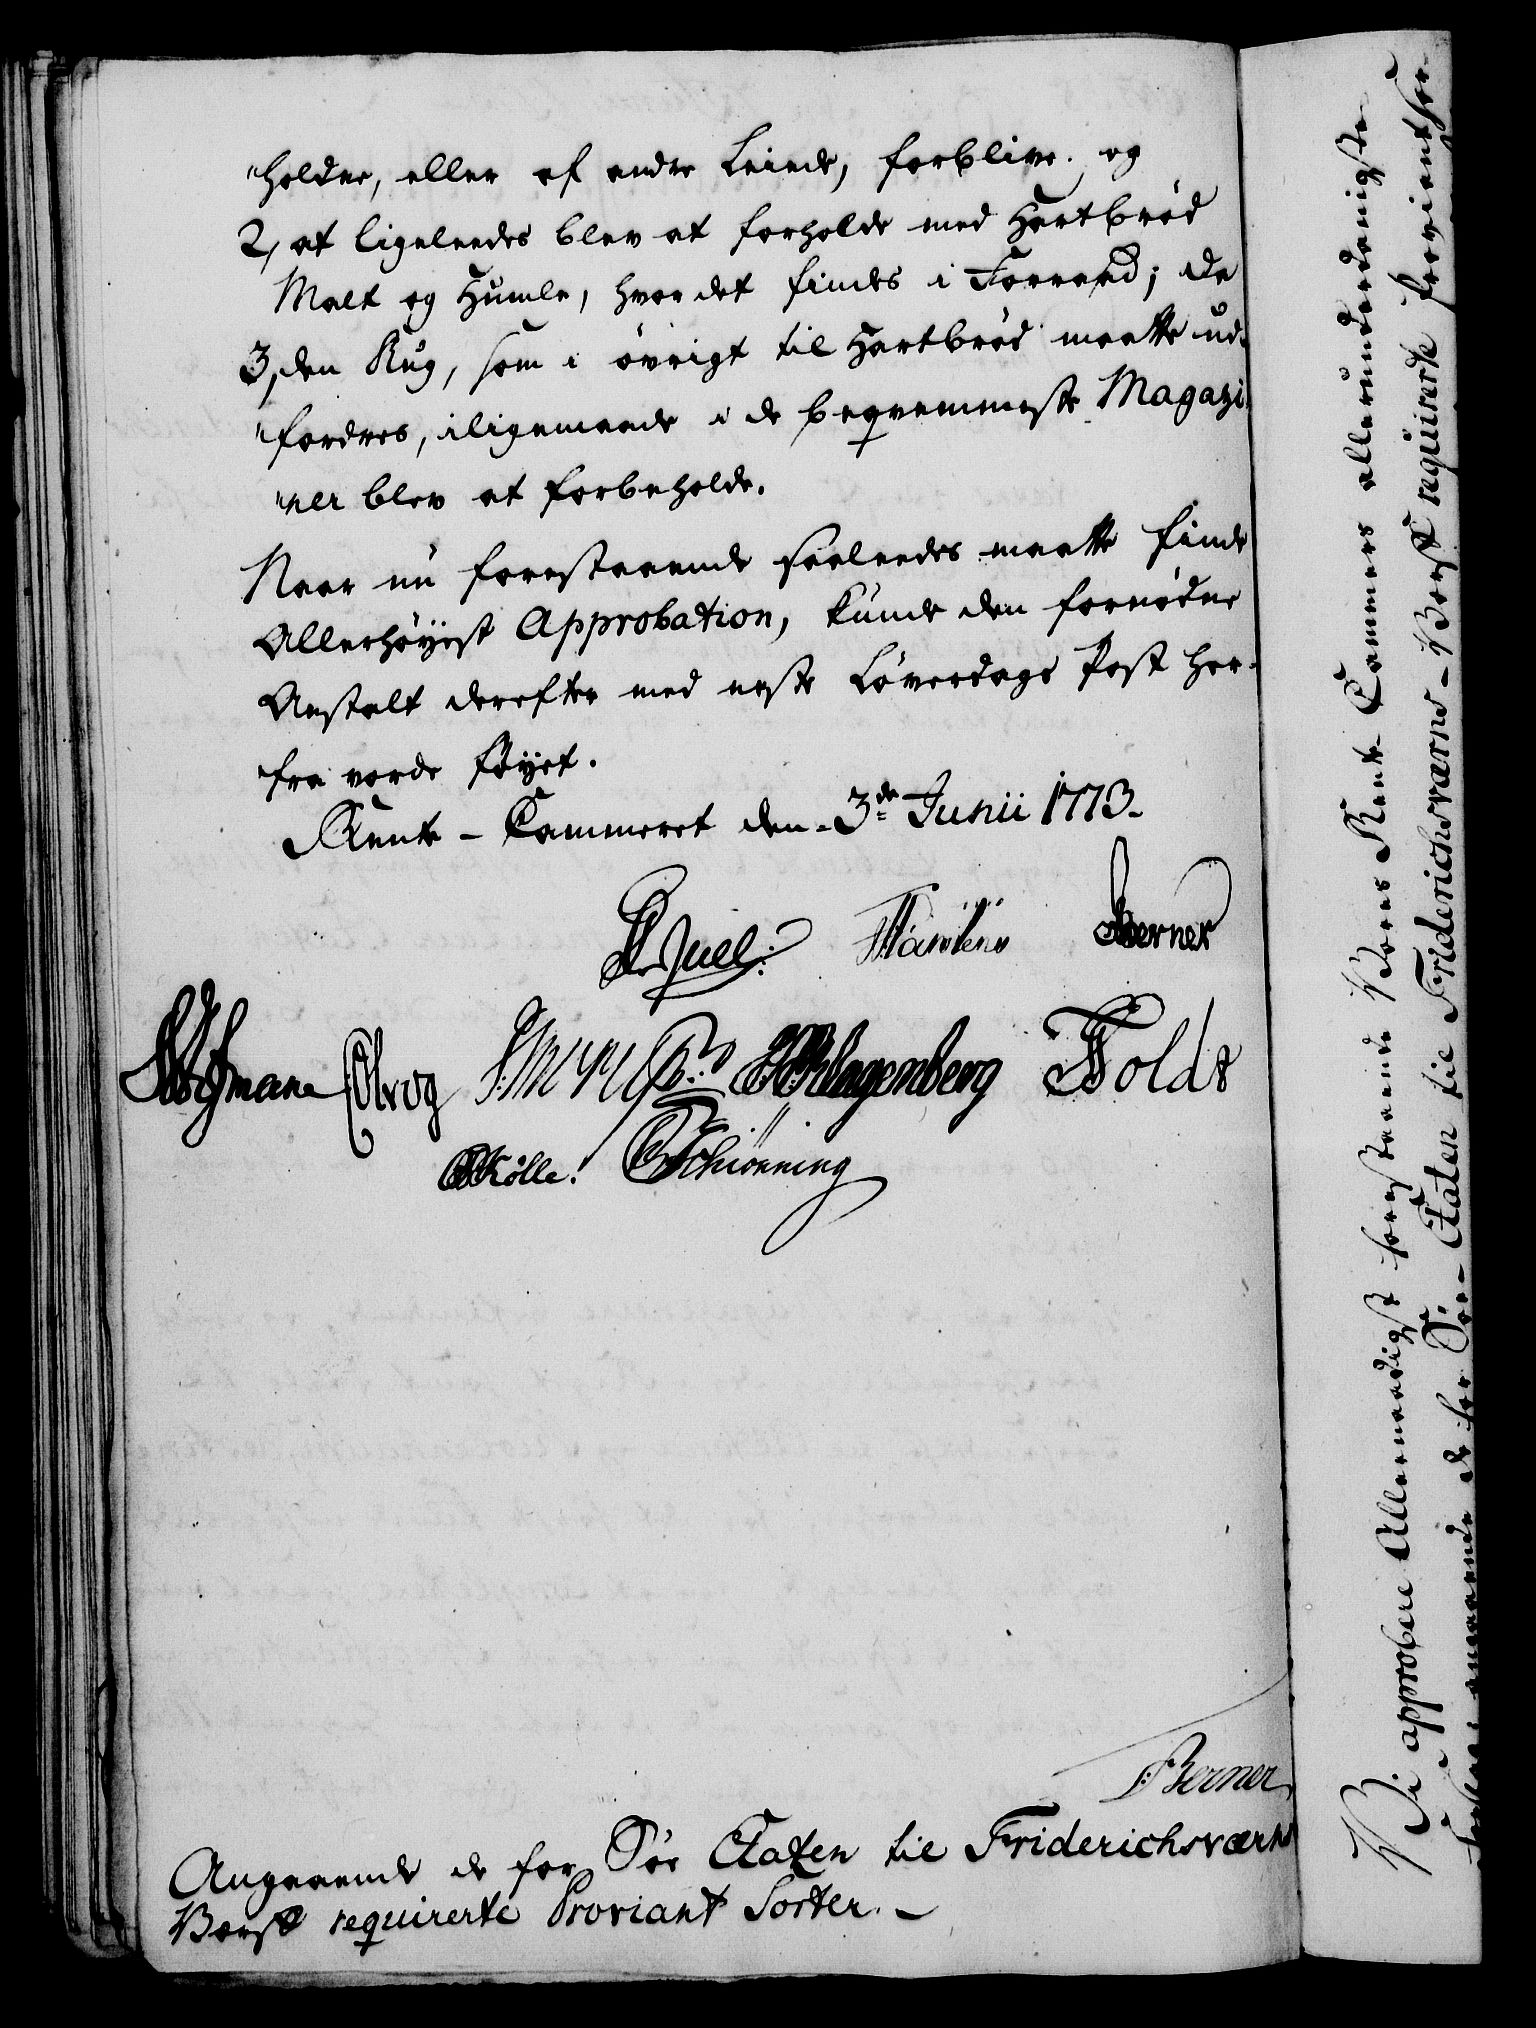 "holdne, eller af andre Leiede, forblive. og
2, at ligeleedes blev at forholde med Hartbrød
Malt og Humle, hvor det findes i Forraad; da
3, den Rug, som i øvrigt til Hartbrød maatte ud-
"fordres, iligemaade i de beqvemmeste Magazi-
"ner blev at forbeholde.
Naar nu forestaaende saaledes maatte finde
Allerhöyest Approbation, kunde den fornødne
Anstalt derefter med neste Löverdags Post her-
"fra vorde föyet.
Rente-Cammeret den 3de Junii 1773.
Juel. Berner
Schlagenberg Holdt
Kölle. Schiönning
Berner
Angaaende de for Söe Etaten til Friderichsværns
Værft requirerte Proviant Sorter.
Vi approbere Allernaadigst forestaaende Vores Rente-Cammers allerunderdanigste
angaaende de for Söe-Etaten til Friderichsværns-Værft requirerte Proviant Sor-